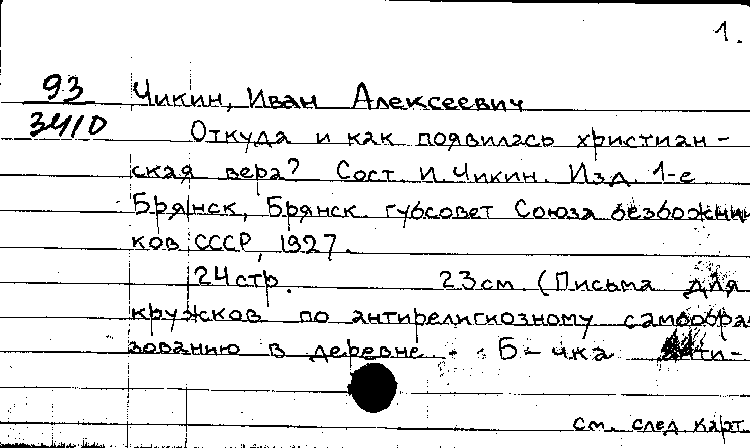 1.
93
3410
Чикин, Иван Алексеевич
Откуда и как появилась христиан-
ская вера? Сост. И. Чикин. Изд. 1-е
Брянск, Брянск. губсовет Союза безбожни
ков СССР, 1927.
24 стр. 23 см. (Письма для
кружков по антирелигиозному самообра
зованию в деревне. Б-чка анти-
см. след. карт.